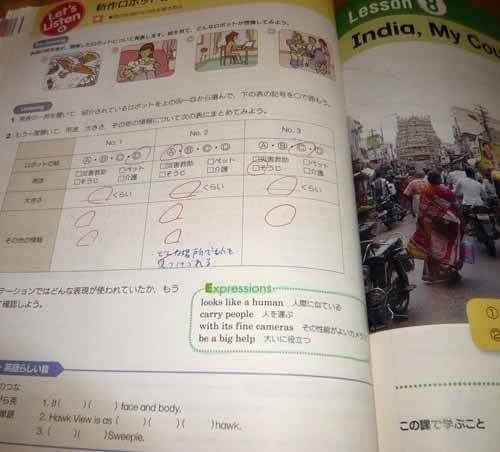 Let's Listen
新作ロボット
Lesson 8
India, My Cou
Listening
1 発表の一部を聞いて、紹介されているロボットを上のⒶ〜Ⓓから選んで、下の表の記号を○で囲もう。
2 もう一度聞いて、用途、大きさ、その他の情報について次の表にまとめてみよう。
No. 1 No. 2 No. 3
ロボットの絵 Ⓐ・Ⓑ・Ⓒ・Ⓓ Ⓐ・Ⓑ・Ⓒ・Ⓓ Ⓐ・Ⓑ・Ⓒ・Ⓓ
用途 □災害救助 □ペット □災害救助 □ペット □災害救助 □ペット
□そうじ □介護 □そうじ □介護 □そうじ □介護
大きさ くらい くらい くらい
その他の情報
見つけられる
テーションではどんな表現が使われていたか、もう
て確認しよう。
Expressions
looks like a human 人間に似ている
carry people 人を運ぶ
with its fine cameras その性能がよいカメラ
be a big help 大いに役立つ
英語らしい音
のつな
がら発
単語
1. It ( ) ( ) face and body.
2. Hawk View is as ( ) ( ) ( ) hawk.
3. ( ) ( ) Sweepie.
①
②
この課で学ぶこと